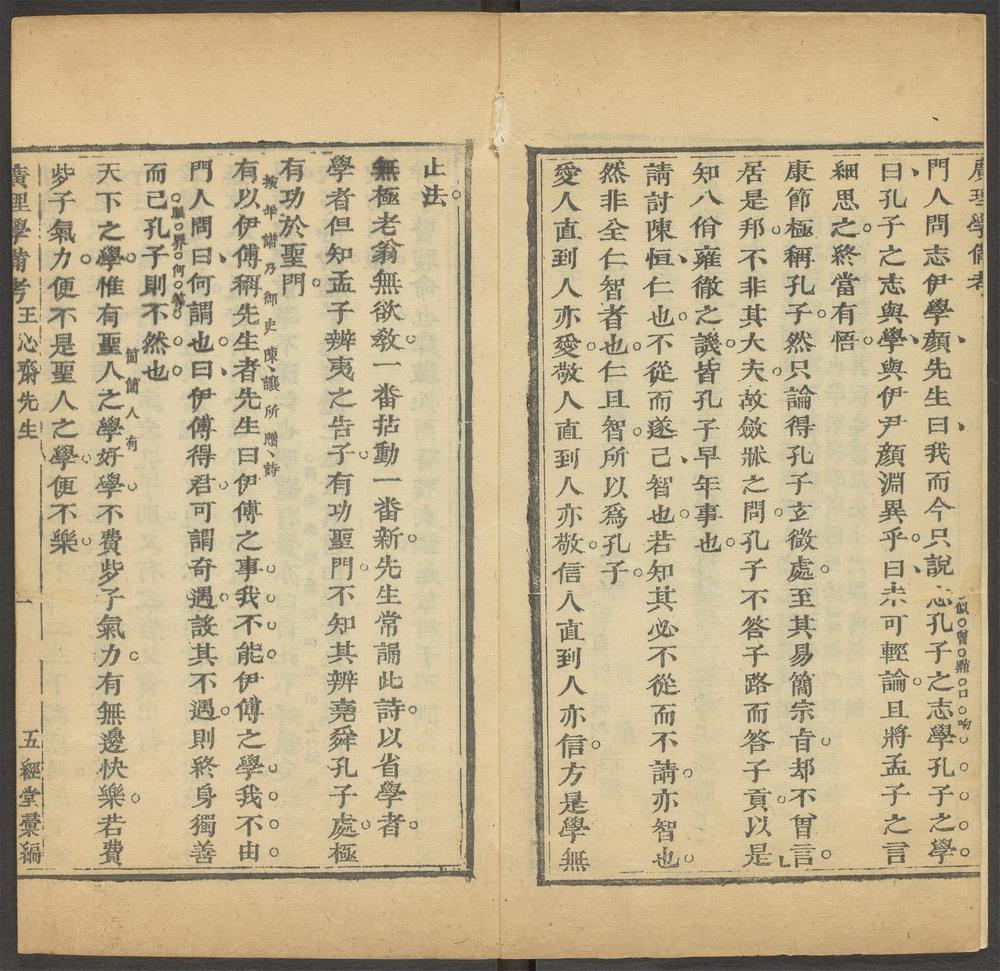 廣理學備考
門人問志伊學顏先生曰我而今只說志孔子之志學孔子之學
似曾點口吻
曰孔子之志與學與伊尹顏淵異乎曰未可輕論且將孟子之言
細思之終當有悟
康節極稱孔子然只論得孔子玄微處至其易簡宗旨却不曾言
居是邦不非其大夫故斂牀之問孔子不答子路而答子貢以是
知八佾雍徹之譏皆孔子早年事也
請討陳恒仁也不從而遂已智也若知其必不從而不請亦智也
然非全仁智者也仁且智所以爲孔子
愛人直到人亦愛敬人直到人亦敬信人直到人亦信方是學無
止法
無極老翁無欲敎一番拈動一番新先生常誦此詩以省學者
學者但知孟子辨夷之告子有功聖門不知其辨堯舜孔子處極
有功於聖門
按年譜乃御史陳讓所贈詩
有以伊傅稱先生者先生曰伊傅之事我不能伊傅之學我不由
門人問曰何謂也曰伊傅得君可謂奇遇設其不遇則終身獨善
眼界何等
而已孔子則不然也
箇箇人有
天下之學惟有聖人之學好學不費些子氣力有無邊快樂若費
些子氣力便不是聖人之學便不樂
廣理學備考王心齋先生 一 五經堂彙編